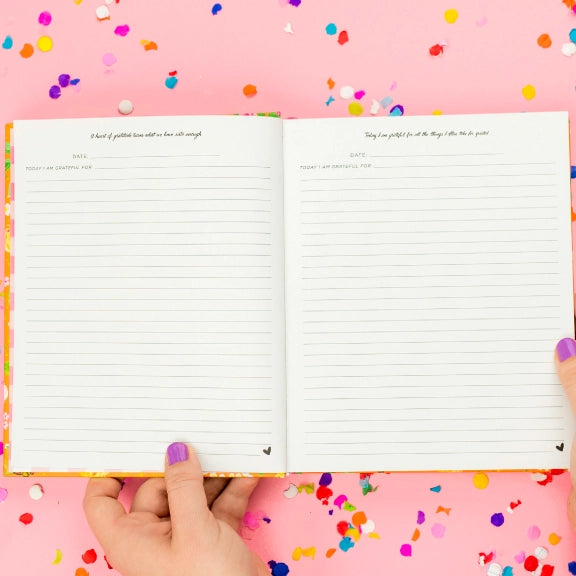 A heart of gratitude turns what we have into enough
DATE:
TODAY I AM GRATEFUL FOR
Today I am grateful for all the things I often take for granted
DATE:
TODAY I AM GRATEFUL FOR